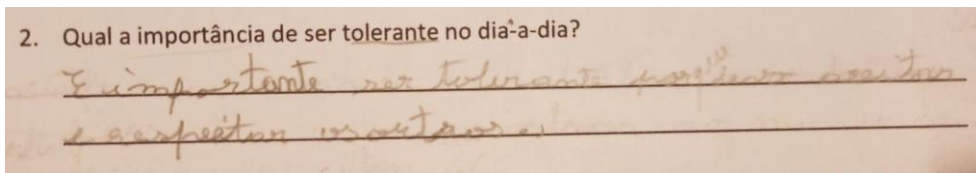 2. Qual a importância de ser tolerante no dia-a-dia?
E importante ser tolerante aseitar
e respeitar os outros.